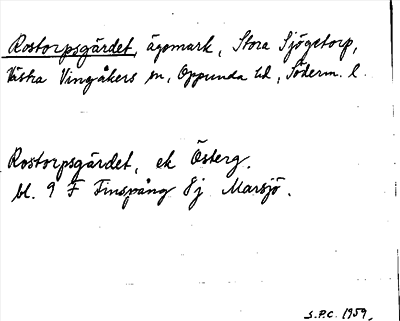 Rostorpsgärdet, ägomark, Stora Sjögetorp,
Västra Vingåkers sn, Oppunda hd, Söderm. l.
Rostorpsgärdet, ek Österg.
bl. 9 F Finspång 8j Marsjö.
S.P.C. 1959.